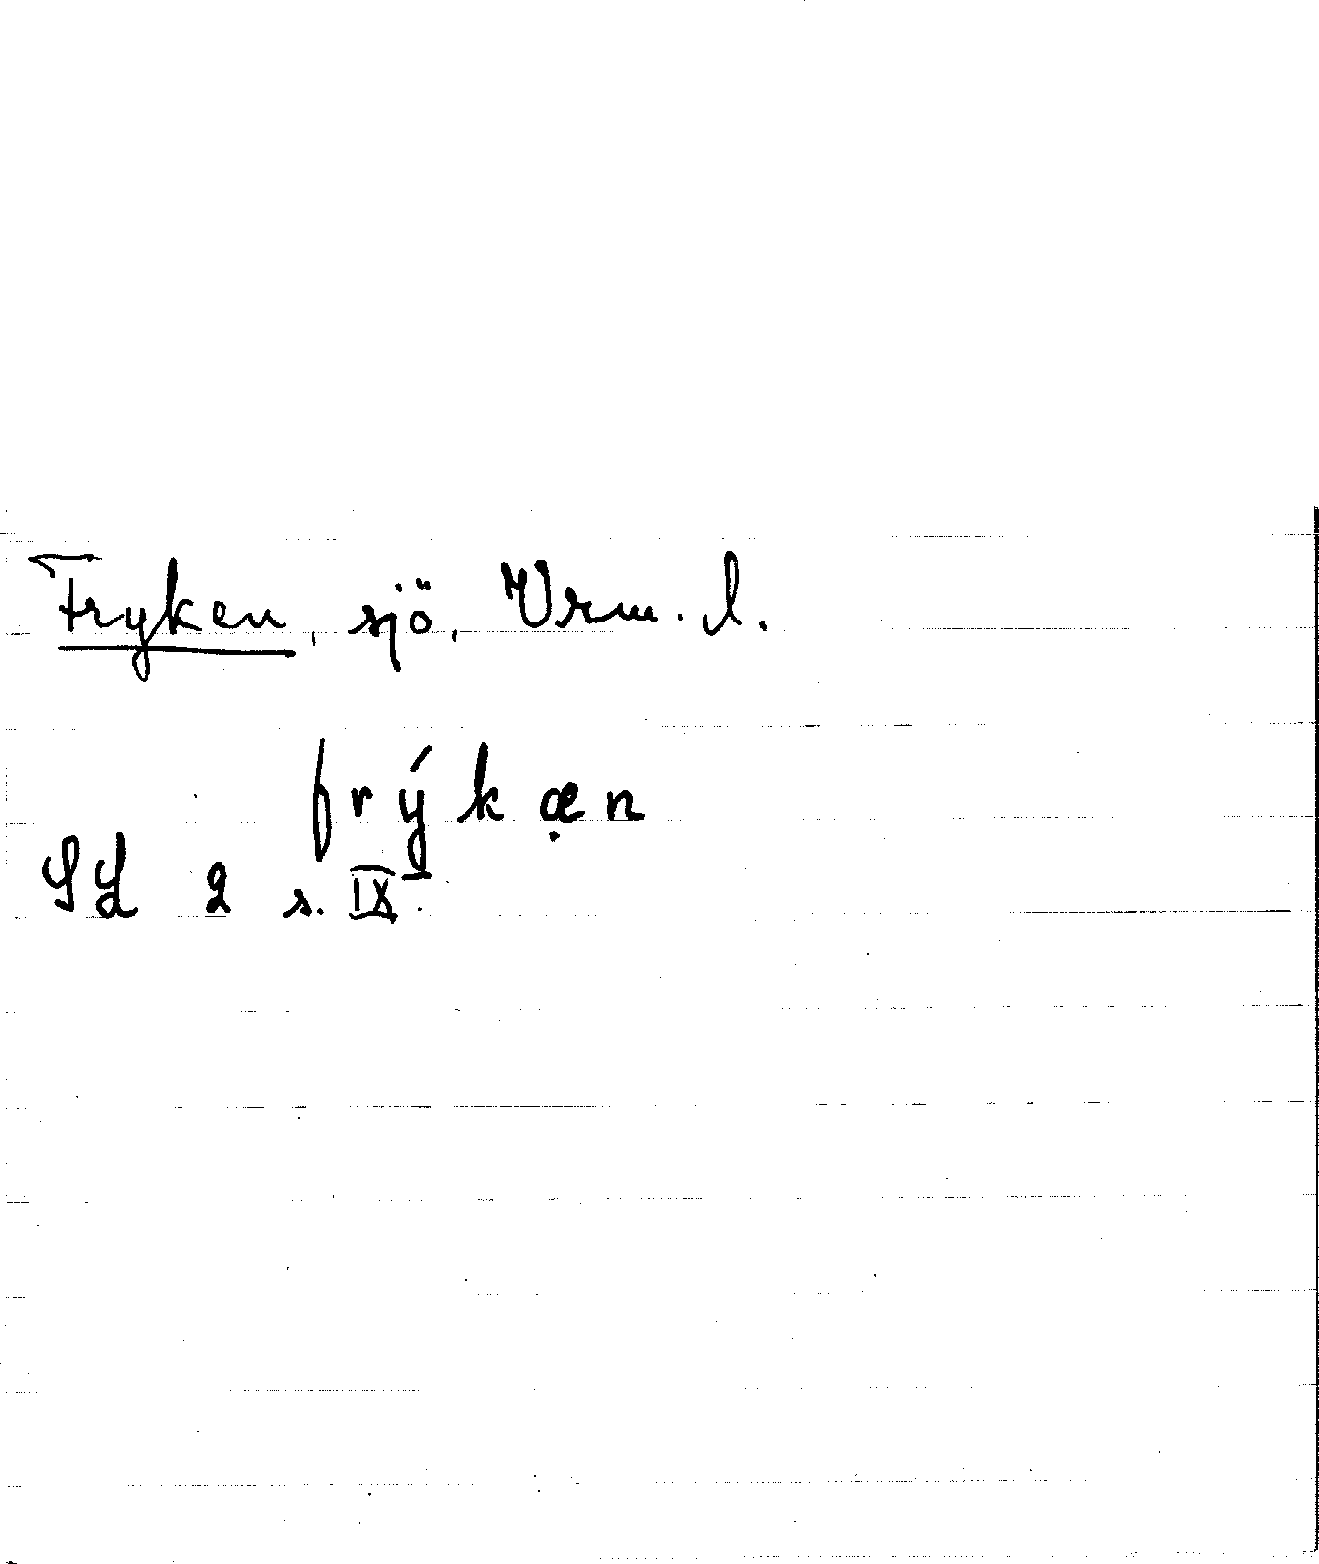 Fryken, sjö, Vrm. l.
frýkæ̣n
SL 2 s. IX